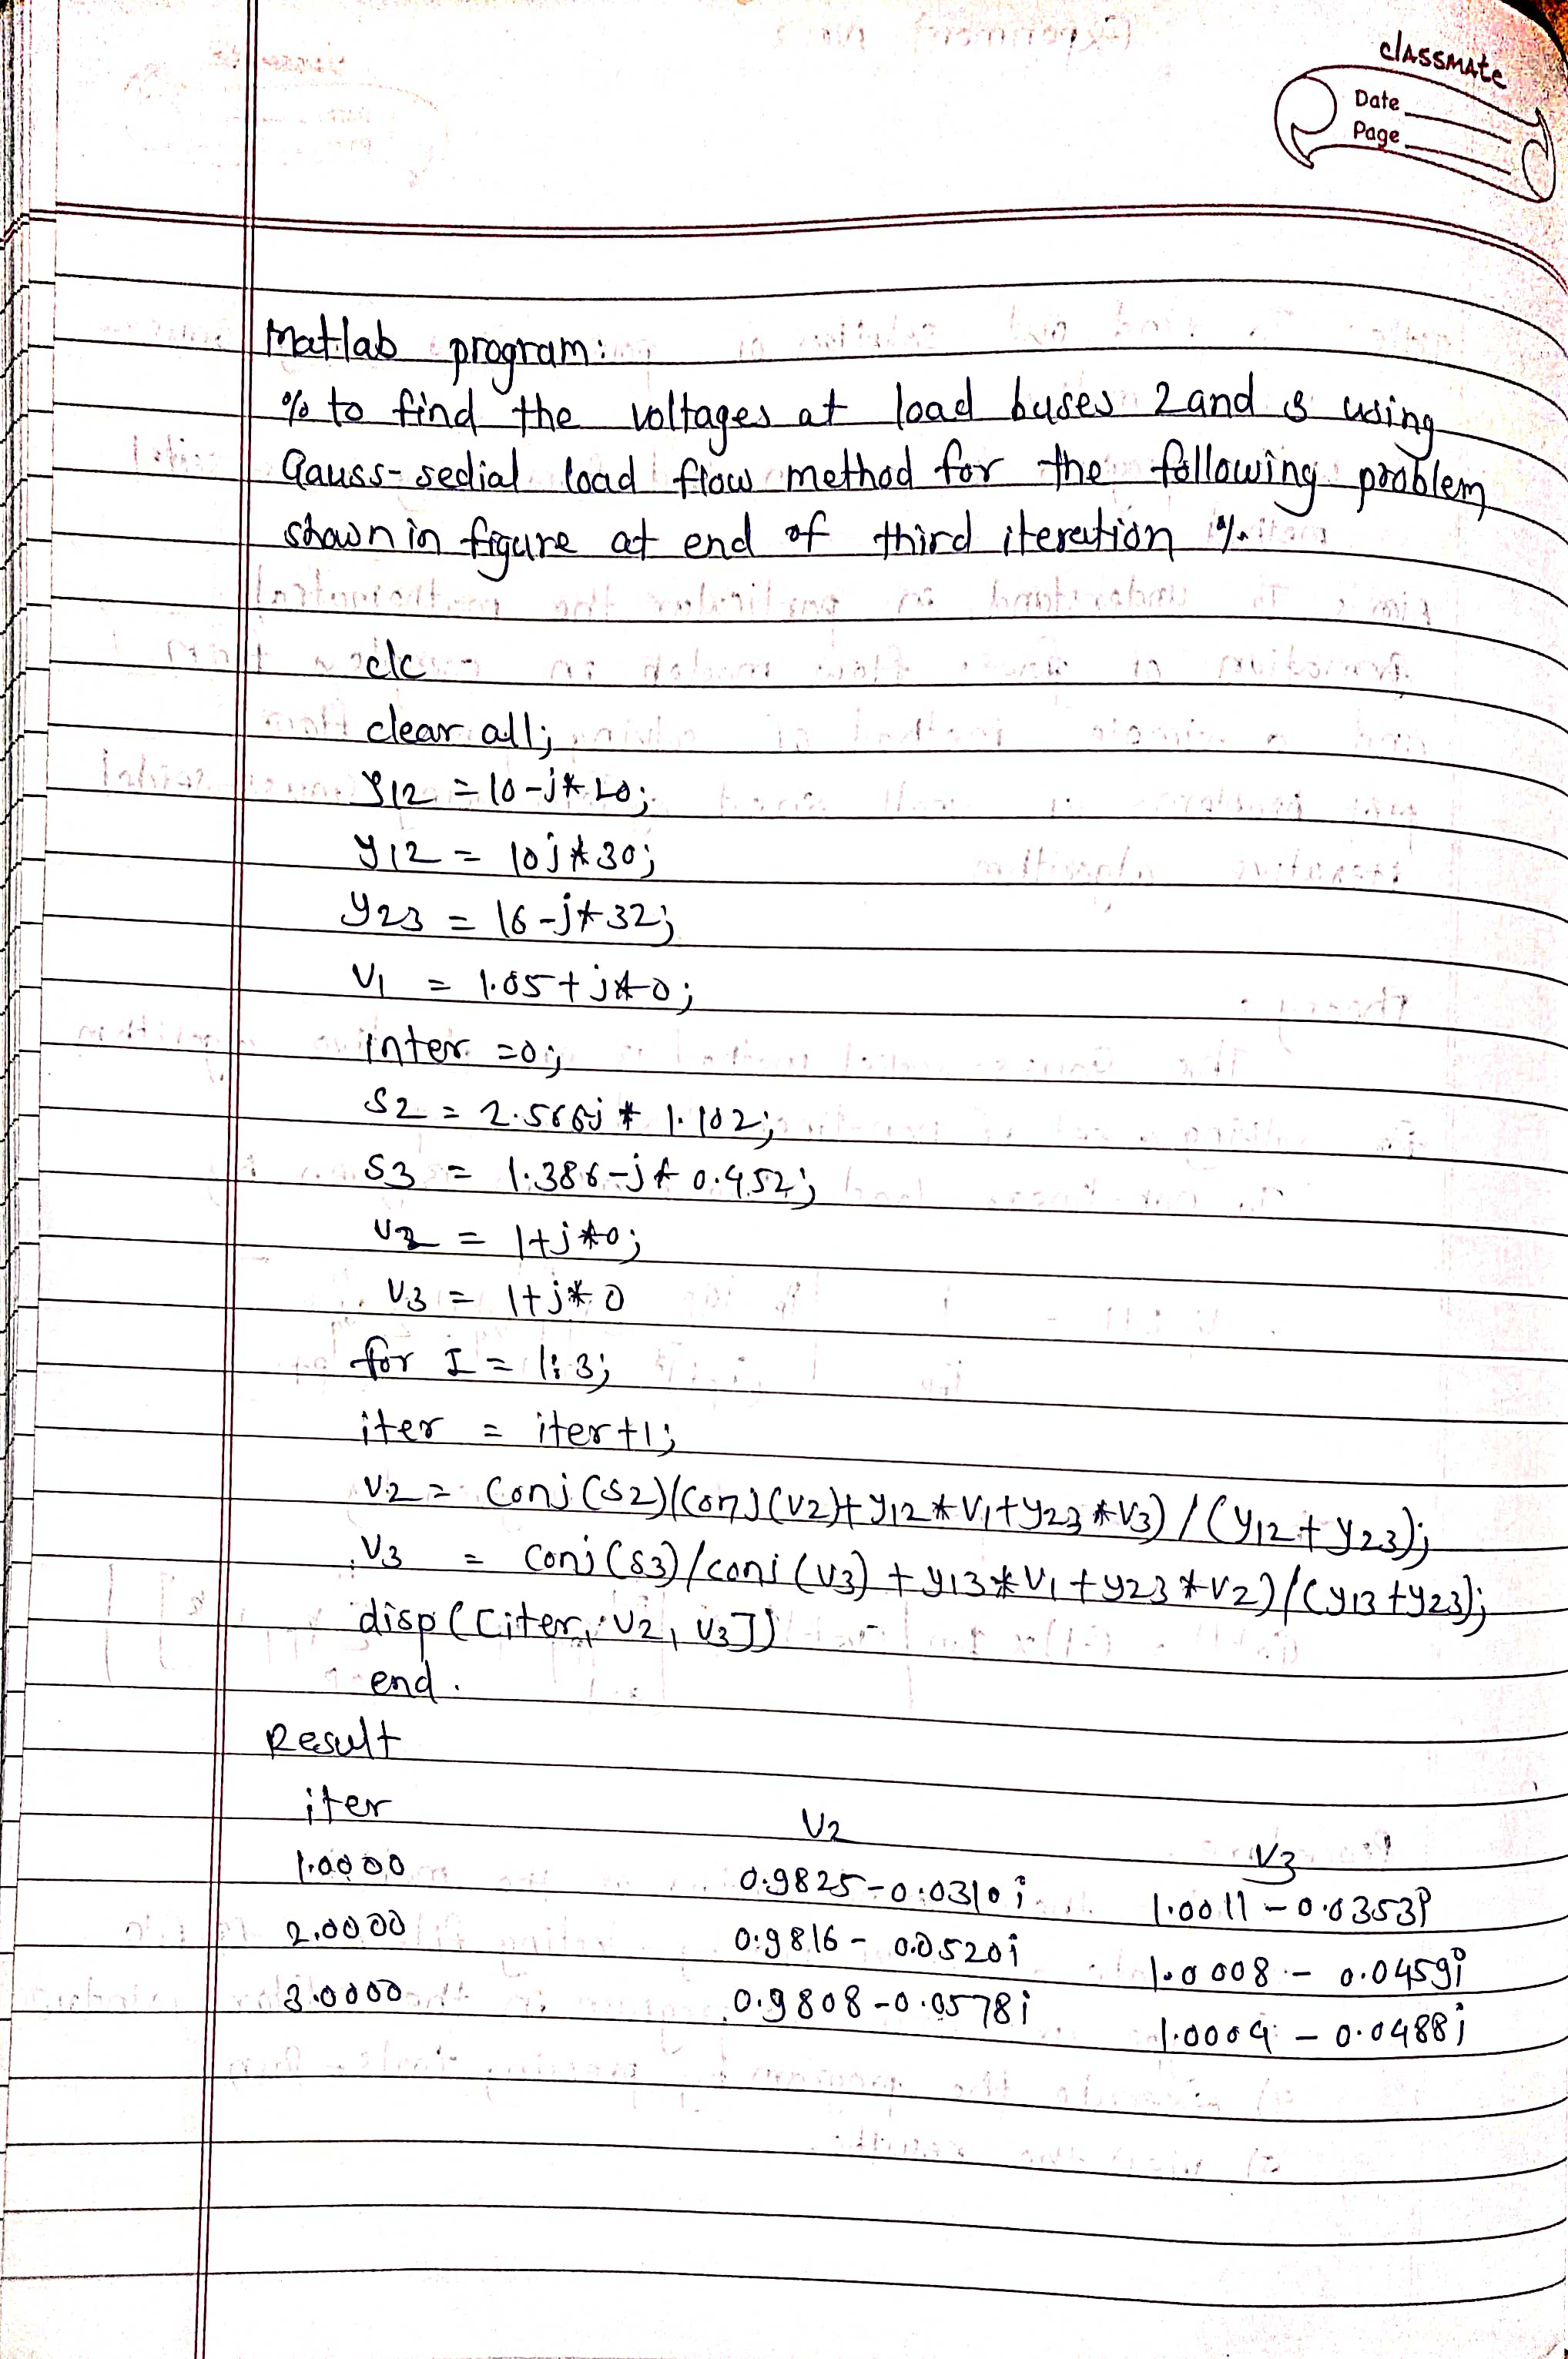 classmate
Date
Page
Matlab program:
% to find the voltages at load buses 2 and 3 using
Gauss-sedial load flow method for the following problem
shown in figure at end of third iteration %
clc
clear all;
y12 = 10-j*20;
y12 = 10j*30;
y23 = 16-j*32;
V1 = 1.05+j*0;
inter =0;
S2 = 2.566j * 1.102;
S3 = 1.386-j*0.452;
V2 = 1+j*0;
V3 = 1+j*0
for I = 1:3;
iter = iter+1;
V2 = Conj(S2)/(Conj(V2)+y12*V1+y23*V3)/(y12+y23);
V3 = conj(S3)/conj(V3)+y13*V1+y23*V2)/(y13+y23);
disp([iter, V2, V3])
end.
Result
iter V2 V3
1.0000 0.9825-0.0310i 1.0011-0.0353i
2.0000 0.9816-0.0520i 1.0008-0.0459i
3.0000 0.9808-0.0578i 1.0004-0.0488i